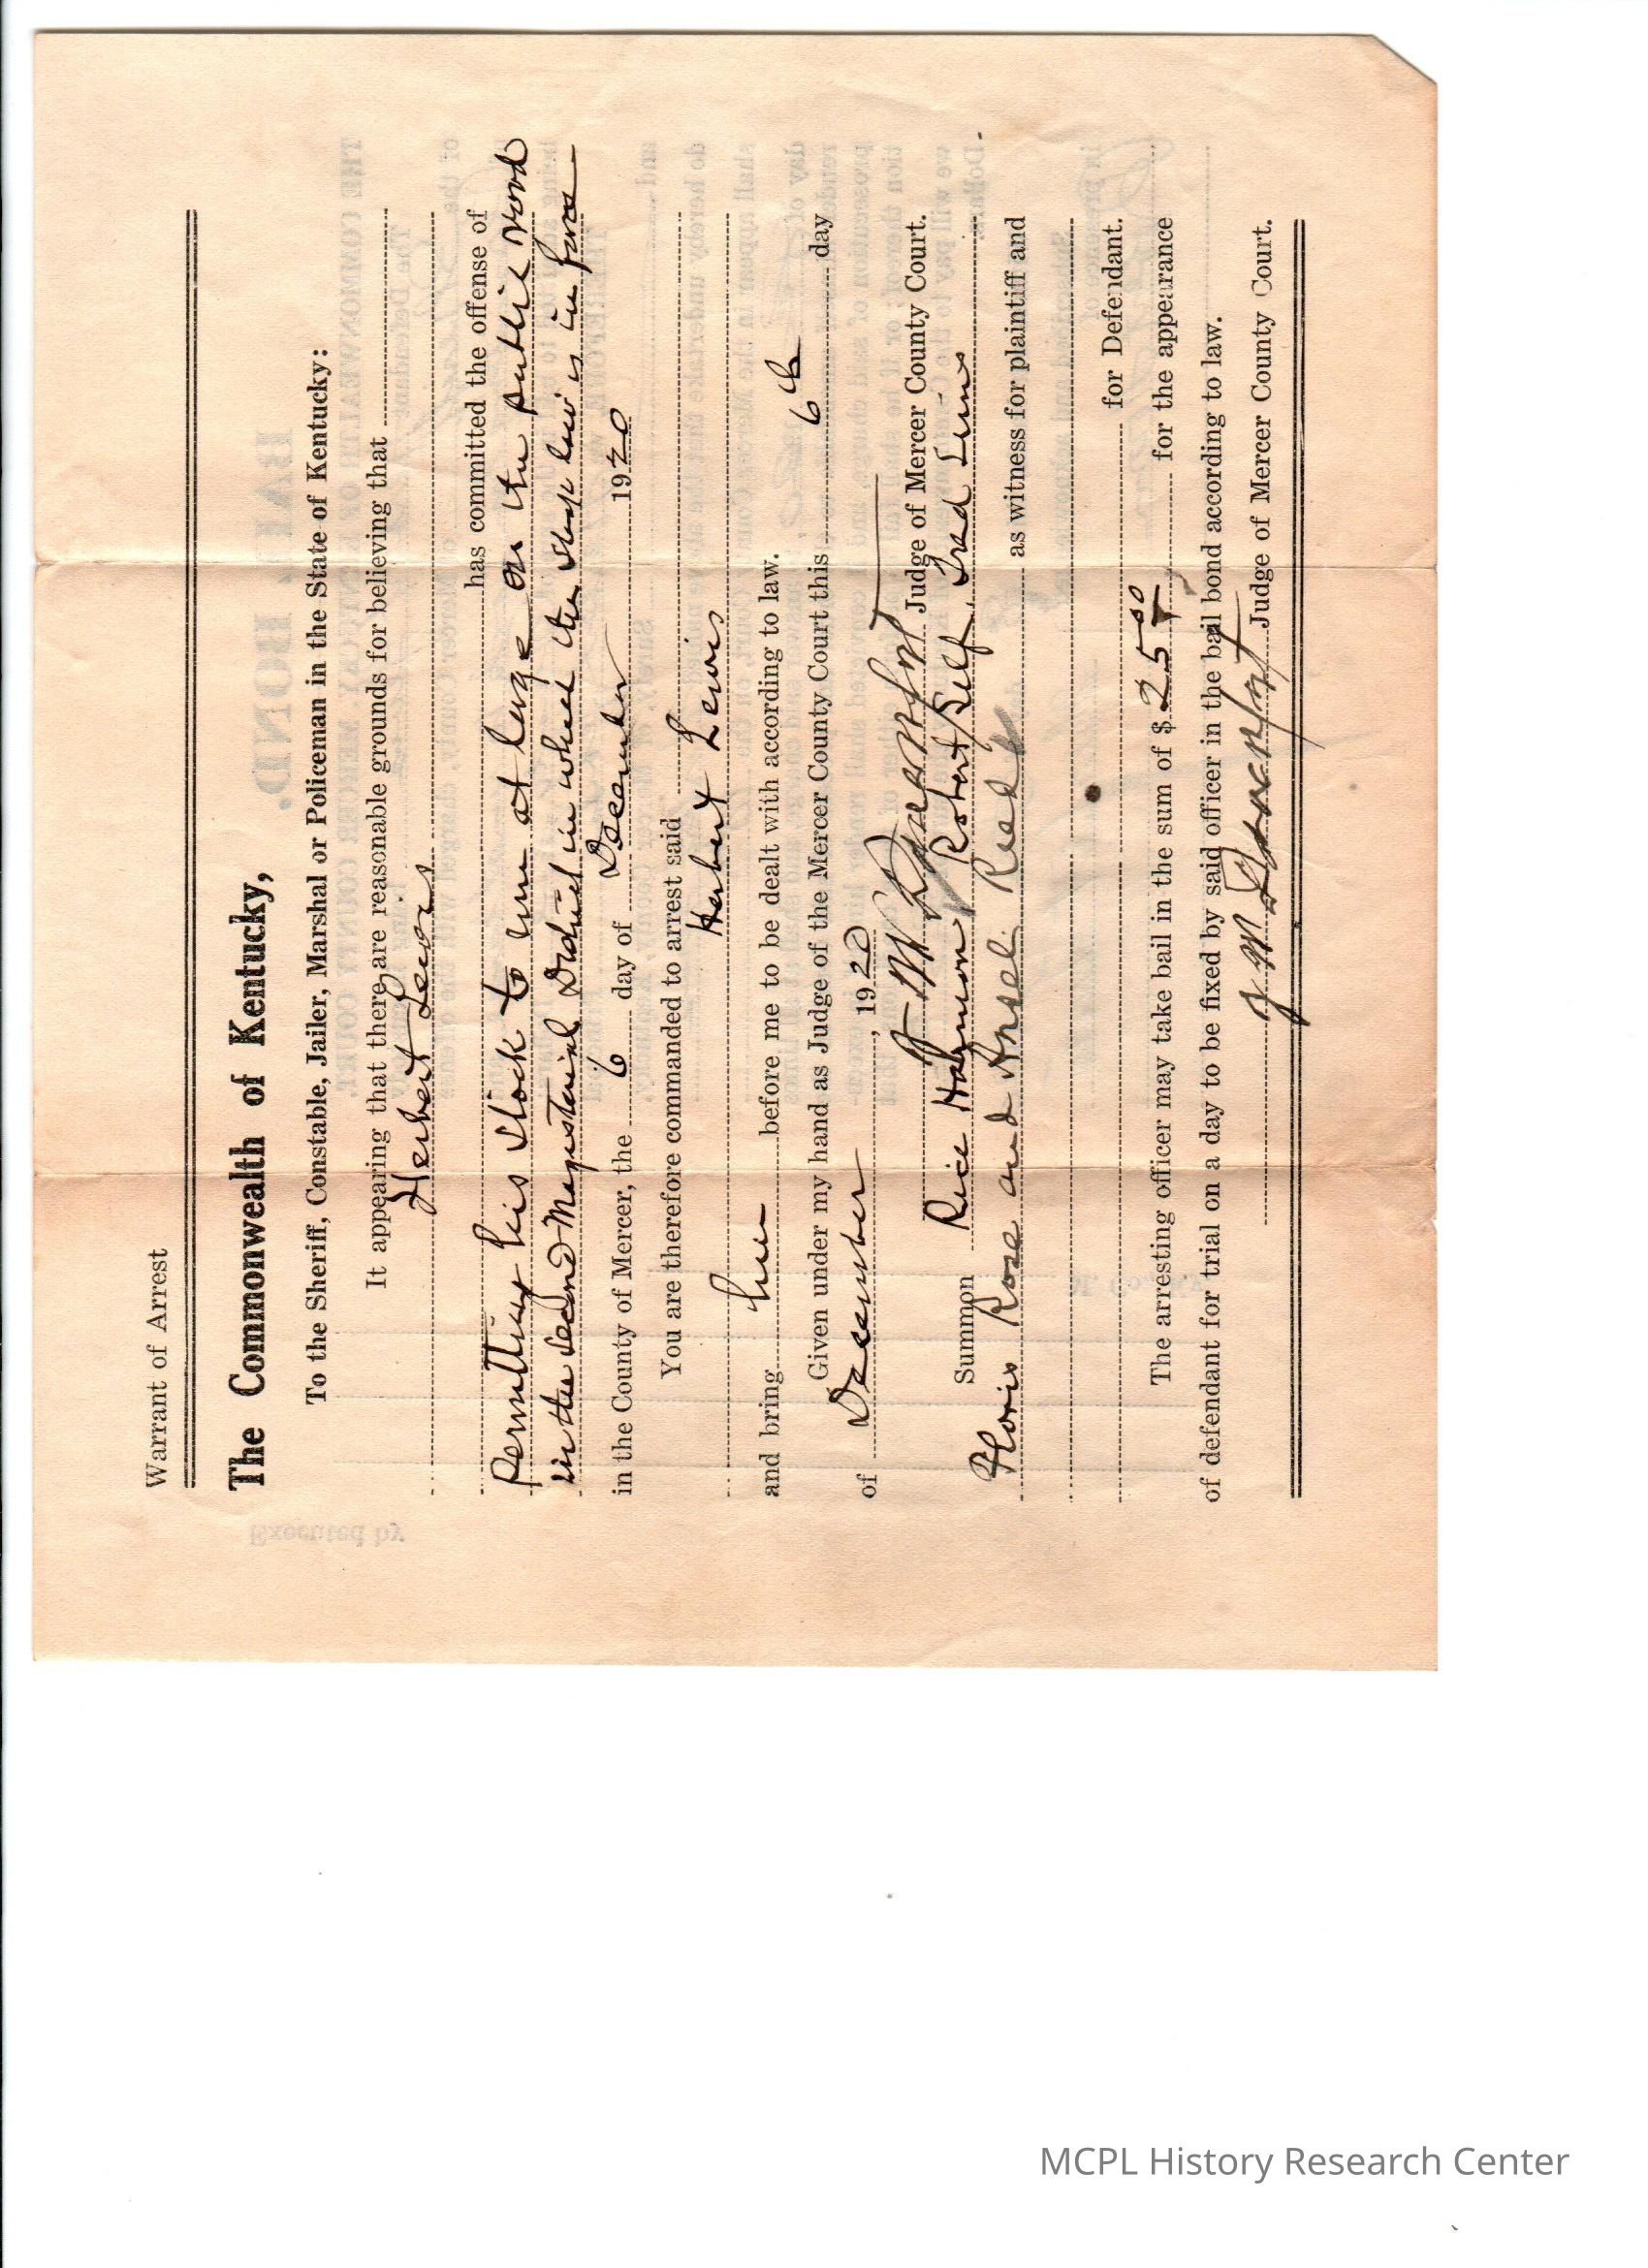 Warrant of Arrest
The Commonwealth of Kentucky,
To the Sheriff, Constable, Jailer, Marshal or Policeman in the State of Kentucky:
It appearing that there are reasonable grounds for believing that
Herbert Lewis
has committed the offense of
Permitting his stock to run at large on the public road
in the second Magesterial District in which the stock law is in force
in the County of Mercer, the 6 day of December 1920
You are therefore commanded to arrest said
Herbert Lewis
and bring him before me to be dealt with according to law.
Given under my hand as Judge of the Mercer County Court this 6th day
of December, 1920
Judge of Mercer County Court.
Summon Rice Robert Self,
Rose and Ansel as witness for plaintiff and
for Defendant.
The arresting officer may take bail in the sum of $ 25 00 for the appearance
of defendant for trial on a day to be fixed by said officer in the bail bond according to law.
Judge of Mercer County Court.
Executed by
BAIL BOND.
MCPL History Research Center